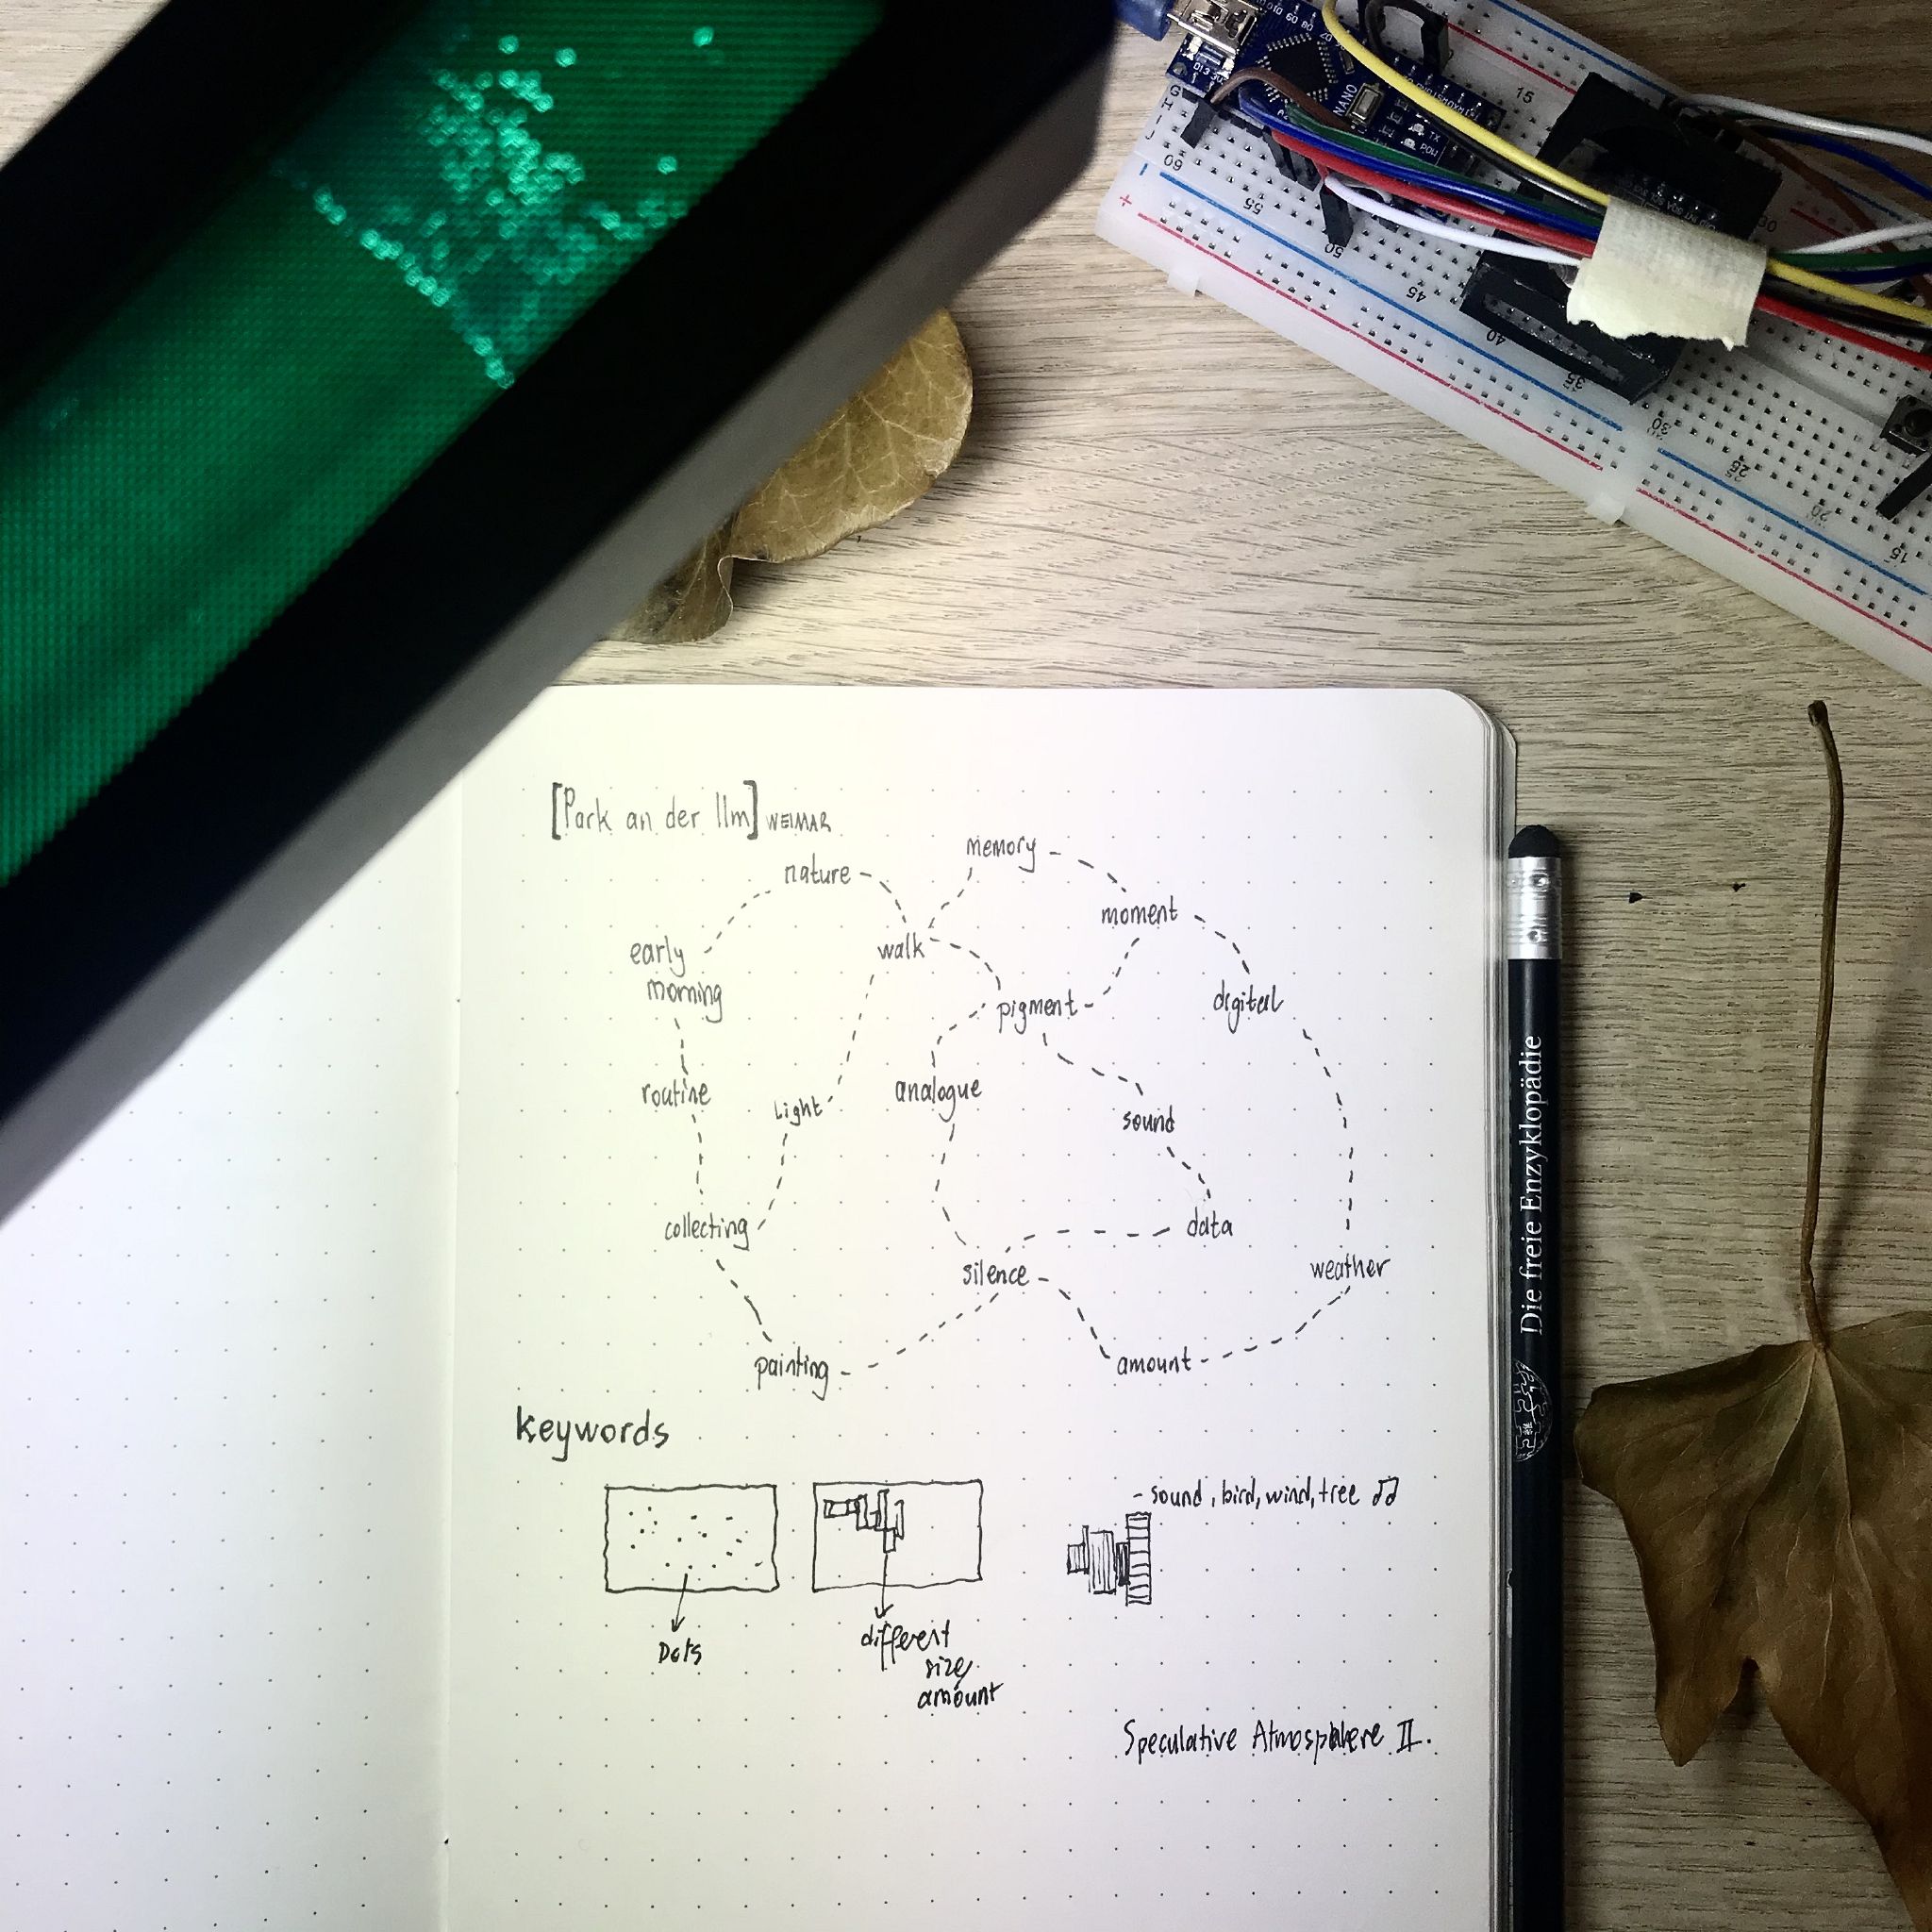 [Park an der Ilm] WEIMAR
memory
nature
moment
early
morning
walk
pigment
digital
routine
light
analogue
sound
collecting
data
silence
weather
painting
amount
keywords
- sound, bird, wind, tree ♫
Dots
different
size,
amount
Speculative Atmosphere II.
Die freie Enzyklopädie
NANO
TX
POW
D13
G
H
I
J
60
55
50
45
40
35
30
25
20
15
15
30